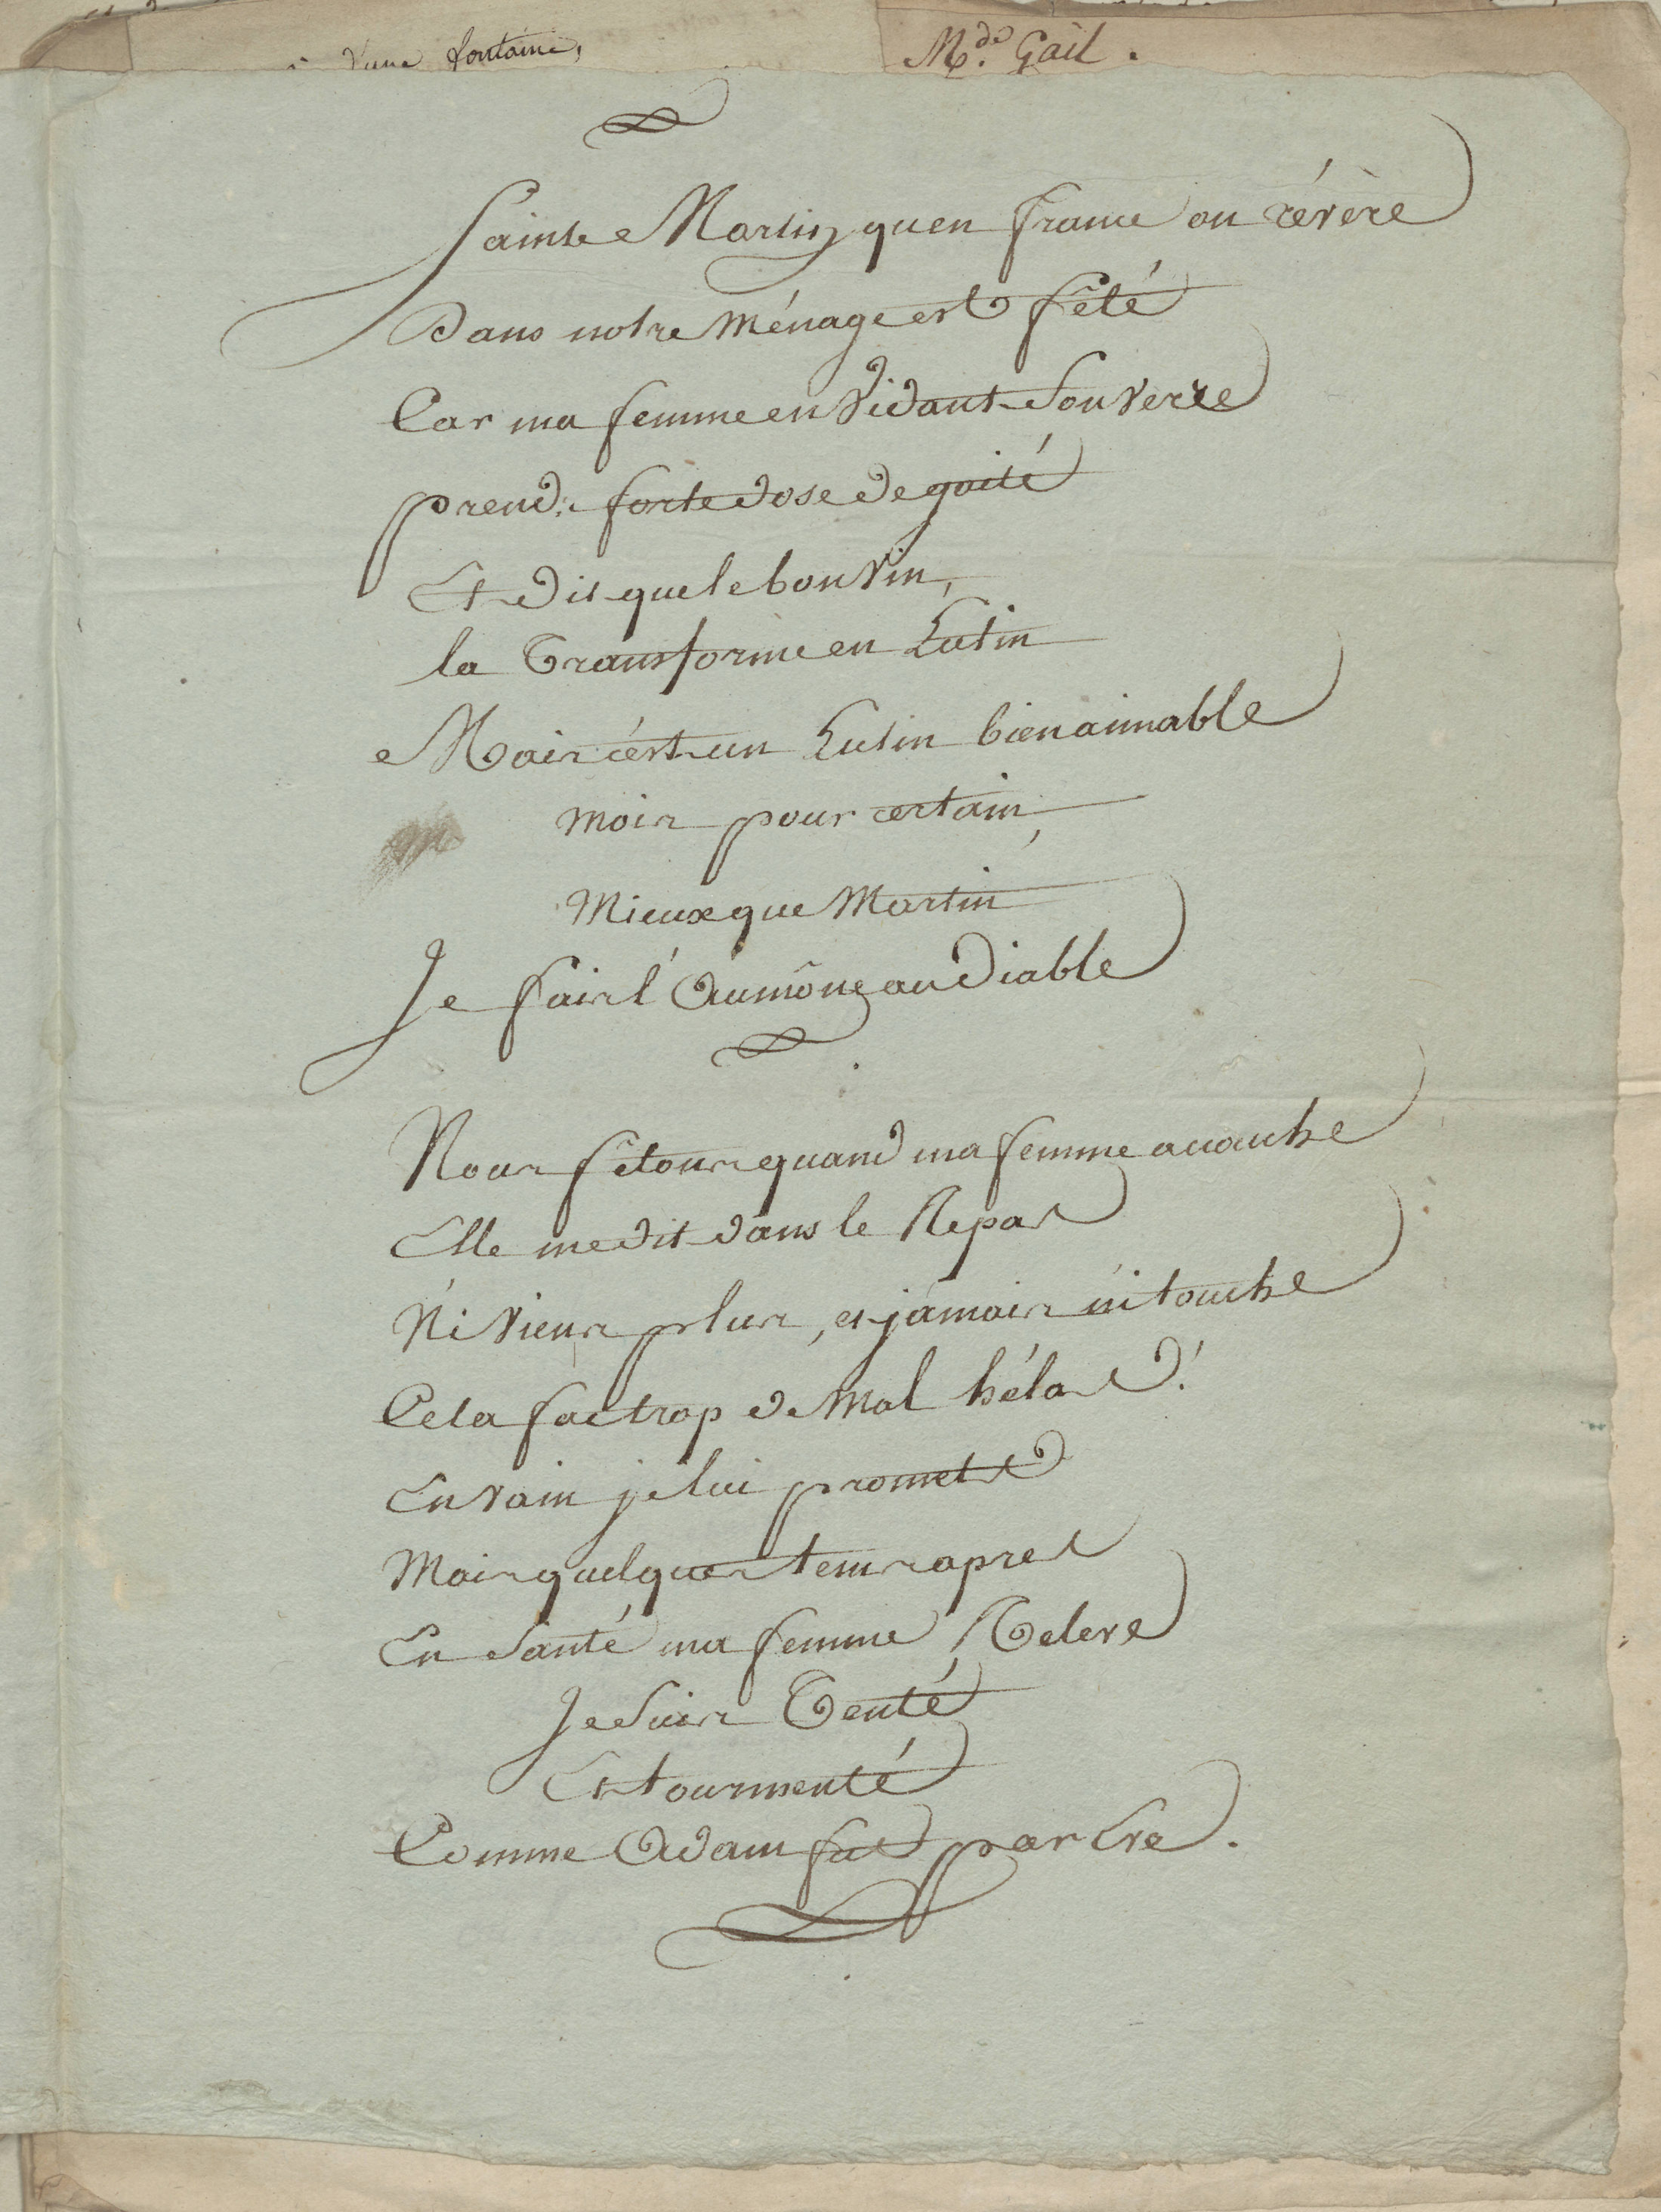 d'une fontaine,
Mde. Gail.
Sainte Martin quen france on révère
Dans notre Ménage est fêté
Car ma femme en Vidant Son Verre
prend forte dose de gaité
Et dit que le bon Vin,
la Transforme en Lutin
Mais c'est un Lutin bien aimable
mois pour certain,
Mieux que Martin
Je fais l'Aumône au Diable
Nous fêtons quand ma femme accouche
Elle me dit dans le Repas
N'i Viens plus, et jamais n'i touche
Cela fai trop de Mal hélas!
En Vain je lui promets
Mais quelques tems apres
En Santé ma femme Releve
Je Suis Tenté
Et tourmenté
Comme Adam fut par Eve.